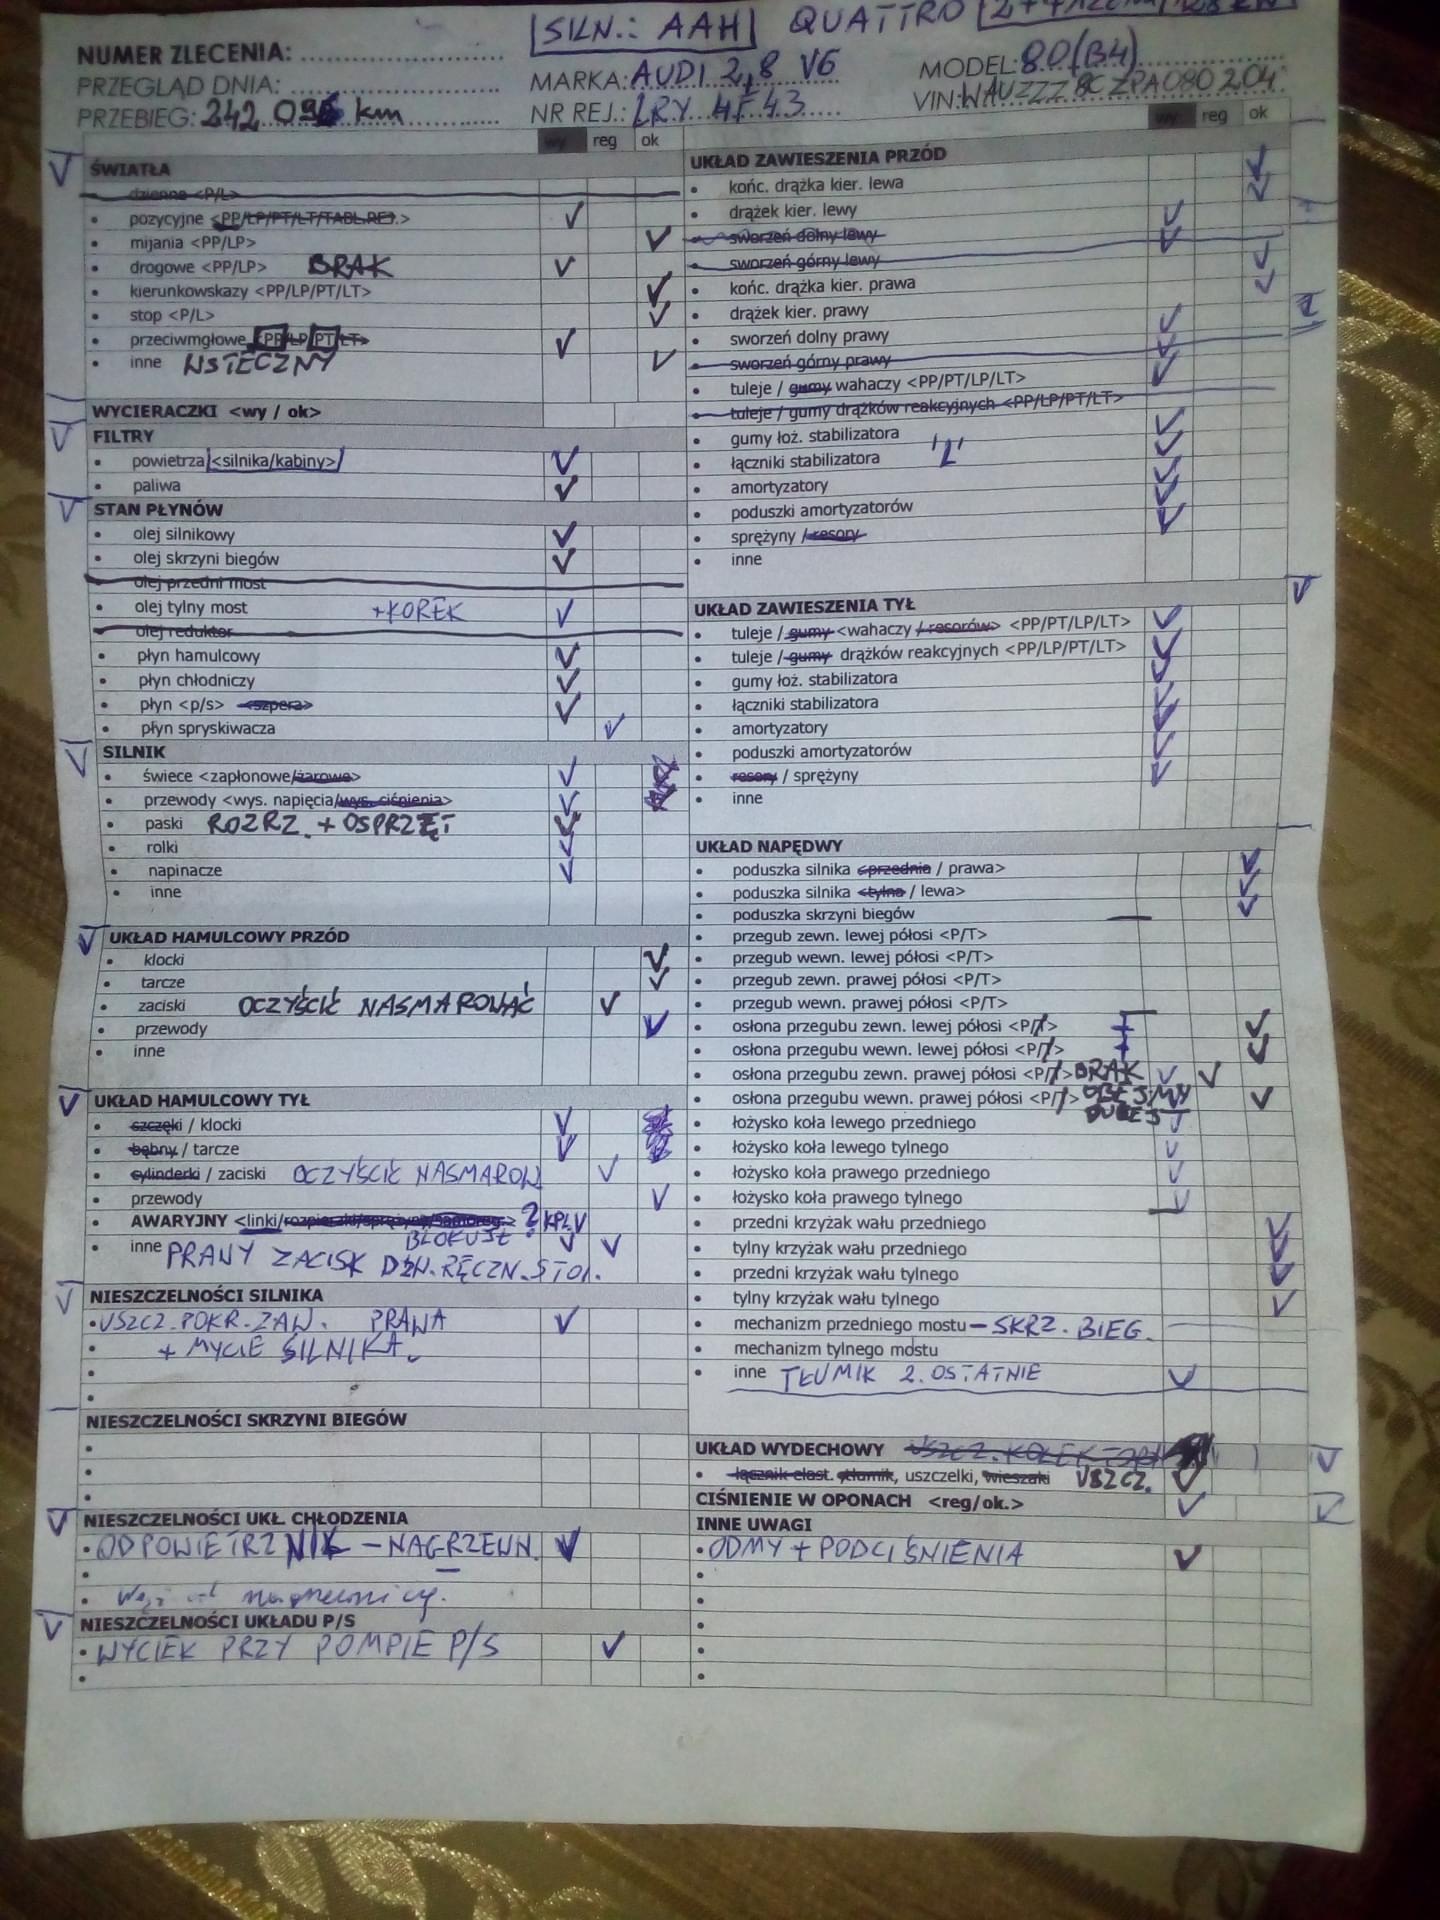 SILN.: AAH QUATTRO
NUMER ZLECENIA:
PRZEGLĄD DNIA:
PRZEBIEG: 242 096 km
MARKA: AUDI 2,8 V6
NR REJ.: LRY 4F43
MODEL: 80 (B4)
VIN: WAUZZZ8CZPA080204
wy reg ok
ŚWIATŁA
dzienne <P/L>
• pozycyjne <PP/LP/PT/LT/TABL.REJ.>
• mijania <PP/LP>
• drogowe <PP/LP> BRAK
• kierunkowskazy <PP/LP/PT/LT>
• stop <P/L>
• przeciwmgłowe <PP/LP/PT/LT>
• inne WSTECZNY
WYCIERACZKI <wy / ok>
FILTRY
• powietrza <silnika/kabiny>
• paliwa
STAN PŁYNÓW
• olej silnikowy
• olej skrzyni biegów
olej przedni most
• olej tylny most +KOREK
olej reduktor
• płyn hamulcowy
• płyn chłodniczy
• płyn <p/s> <szpera>
• płyn spryskiwacza
SILNIK
• świece <zapłonowe/żarowe>
• przewody <wys. napięcia/wys. ciśnienia>
• paski ROZRZ. + OSPRZĘT
• rolki
• napinacze
• inne
UKŁAD HAMULCOWY PRZÓD
• klocki
• tarcze
• zaciski OCZYŚCIĆ NASMAROWAĆ
• przewody
• inne
UKŁAD HAMULCOWY TYŁ
• szczęki / klocki
• bębny / tarcze
• cylinderki / zaciski OCZYŚCIĆ NASMAROW
• przewody
• AWARYJNY <linki/rozpieraki/sprężyny/samoreg.> ? KPL
BLOKUJE
• inne PRAWY ZACISK DŹW. RĘCZN. STOI.
NIESZCZELNOŚCI SILNIKA
• USZCZ. POKR. ZAW. PRAWA
• + MYCIE SILNIKA.
•
•
NIESZCZELNOŚCI SKRZYNI BIEGÓW
•
•
•
NIESZCZELNOŚCI UKŁ. CHŁODZENIA
• ODPOWIETRZNIK - NAGRZEWN.
•
• nagrzewnicy.
NIESZCZELNOŚCI UKŁADU P/S
• WYCIEK PRZY POMPIE P/S
•
wy reg ok
UKŁAD ZAWIESZENIA PRZÓD
• końc. drążka kier. lewa
• drążek kier. lewy
• sworzeń dolny lewy
• sworzeń górny lewy
• końc. drążka kier. prawa
• drążek kier. prawy
• sworzeń dolny prawy
• sworzeń górny prawy
• tuleje / gumy wahaczy <PP/PT/LP/LT>
• tuleje / gumy drążków reakcyjnych <PP/LP/PT/LT>
• gumy łoż. stabilizatora
• łączniki stabilizatora 'L'
• amortyzatory
• poduszki amortyzatorów
• sprężyny / resory
• inne
UKŁAD ZAWIESZENIA TYŁ
• tuleje / gumy <wahaczy / resorów> <PP/PT/LP/LT>
• tuleje / gumy drążków reakcyjnych <PP/LP/PT/LT>
• gumy łoż. stabilizatora
• łączniki stabilizatora
• amortyzatory
• poduszki amortyzatorów
• resory / sprężyny
• inne
UKŁAD NAPĘDWY
• poduszka silnika <przednia / prawa>
• poduszka silnika <tylna / lewa>
• poduszka skrzyni biegów
• przegub zewn. lewej półosi <P/T>
• przegub wewn. lewej półosi <P/T>
• przegub zewn. prawej półosi <P/T>
• przegub wewn. prawej półosi <P/T>
• osłona przegubu zewn. lewej półosi <P/T>
• osłona przegubu wewn. lewej półosi <P/T>
• osłona przegubu zewn. prawej półosi <P/T> BRAK
• osłona przegubu wewn. prawej półosi <P/T> OBEJMY
• łożysko koła lewego przedniego
• łożysko koła lewego tylnego
• łożysko koła prawego przedniego
• łożysko koła prawego tylnego
• przedni krzyżak wału przedniego
• tylny krzyżak wału przedniego
• przedni krzyżak wału tylnego
• tylny krzyżak wału tylnego
• mechanizm przedniego mostu - SKRZ. BIEG.
• mechanizm tylnego mostu
• inne TŁUMIK 2. OSTATNIE
UKŁAD WYDECHOWY USZCZ. KOLEKTOR
• łącznik elast. tłumik, uszczelki, wieszaki USZCZ.
CIŚNIENIE W OPONACH <reg/ok.>
INNE UWAGI
• ODMY + PODCIŚNIENIA
•
•
•
•
•